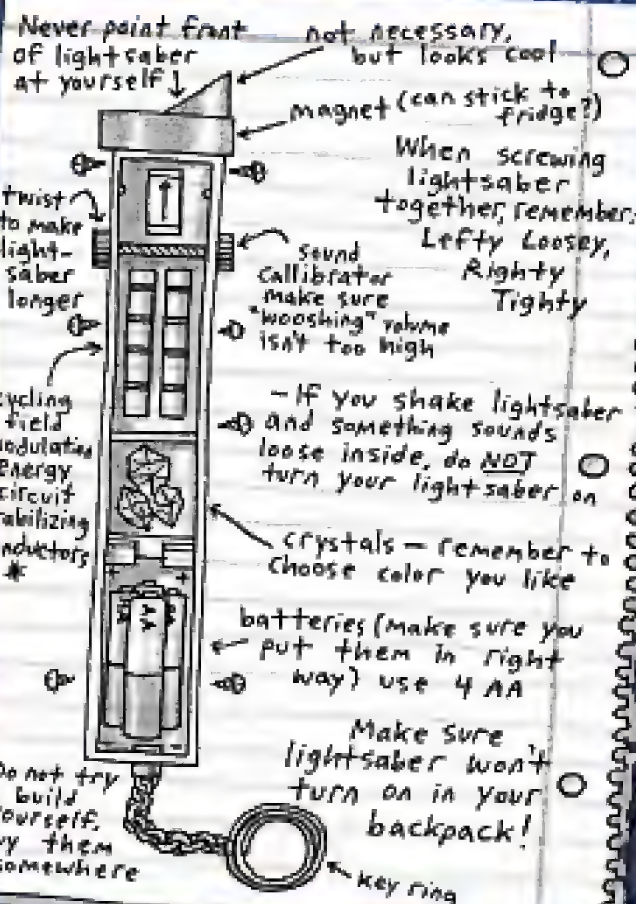 Never point front
of lightsaber
at yourself
not necessary,
but looks cool
magnet (can stick to
fridge?)
When screwing
lightsaber
together, remember:
Lefty Loosey,
Righty
Tighty
twist
to make
light-
saber
longer
sound
Callibrator
make sure
"wooshing" volume
isn't too high
cycling
field
modulating
energy
circuit
stabilizing
inductors
*
- If you shake lightsaber
and something sounds
loose inside, do NOT
turn your lightsaber on
crystals - remember to
choose color you like
AA
AA
batteries (make sure you
put them in right
way) use 4 AA
Make sure
lightsaber won't
turn on in your
backpack!
Do not try
build
yourself.
buy them
somewhere
key ring